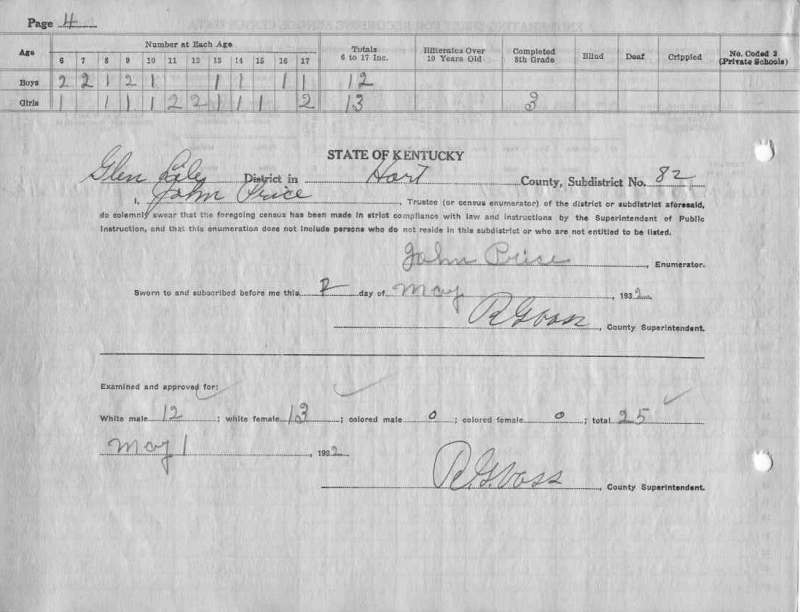 Page 4
Age Number at Each Age Totals 6 to 17 Inc. Illiterates Over 10 Years Old Completed 8th Grade Blind Deaf Crippled No. Coded 2 (Private Schools)
6 7 8 9 10 11 12 13 14 15 16 17
Boys 2 2 1 2 1 1 1 1 1 12
Girls 1 1 1 1 2 2 1 1 1 2 13 3
STATE OF KENTUCKY
Glen Lily District in Hart County, Subdistrict No. 82
I, John Price, Trustee (or census enumerator) of the district or subdistrict aforesaid,
do solemnly swear that the foregoing census has been made in strict compliance with law and instructions by the Superintendent of Public
Instruction, and that this enumeration does not include persons who do not reside in this subdistrict or who are not entitled to be listed.
John Price, Enumerator.
Sworn to and subscribed before me this day of May, 1932
, County Superintendent.
Examined and approved for:
White male 12; white female 13; colored male 0; colored female 0; total 25
May 1, 1932
, County Superintendent.